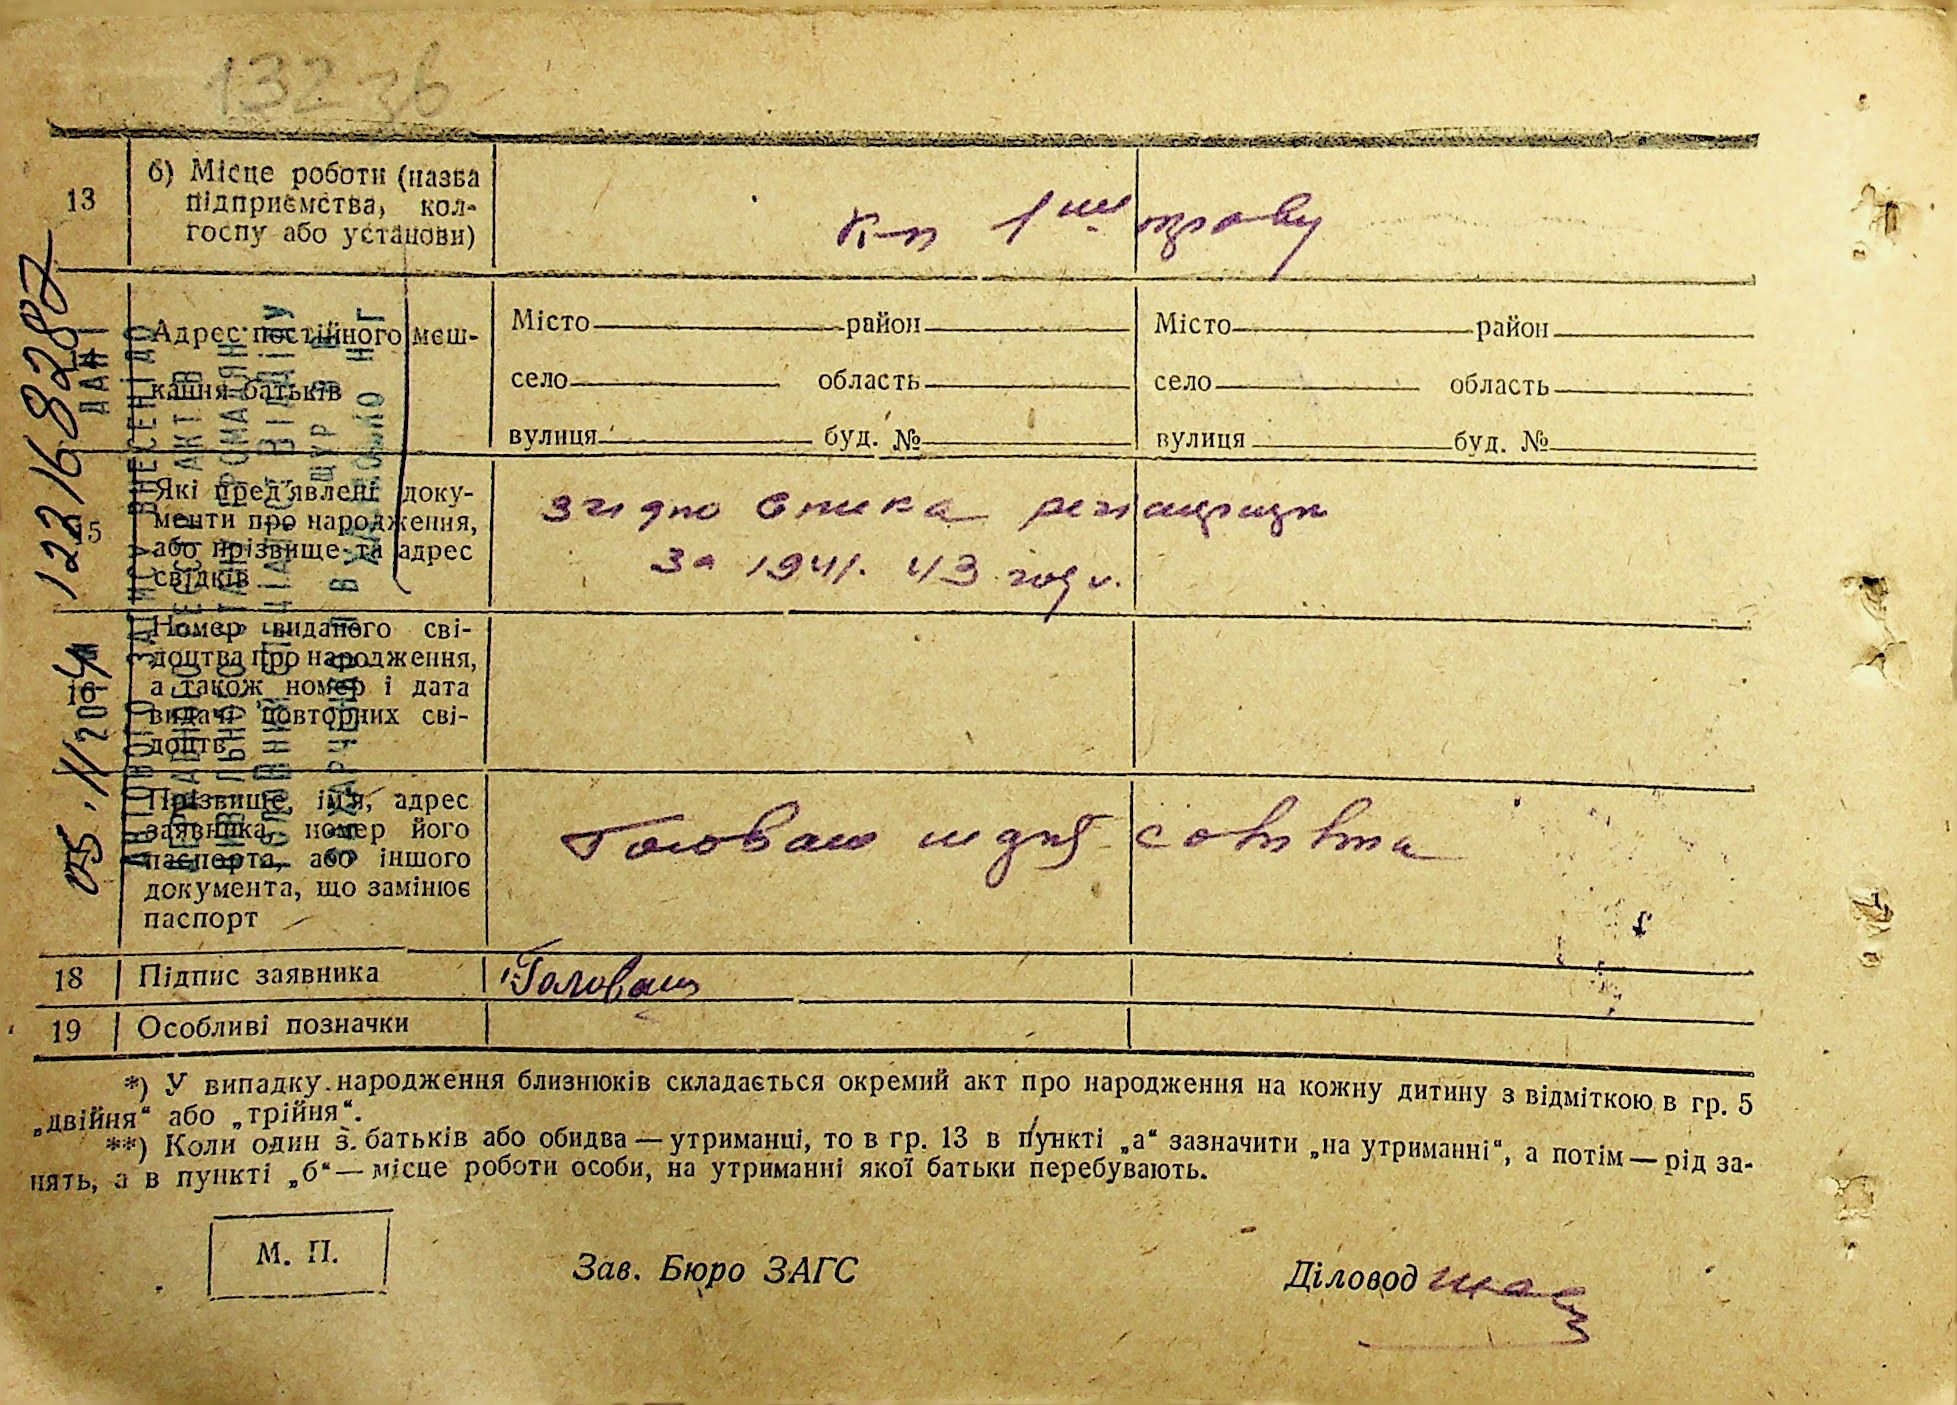 132 зв
13
б) Місце роботи (назва
підприємства, кол-
госпу або установи)
к-п 1 ше травня
Адрес постійного меш-
кання батьків
Місто район
село область
вулиця буд. №
Місто район
село область
вулиця буд. №
15
Які пред'явлені доку-
менти про народження,
або прізвище та адрес
свідків
згідно
за 1941. 43
16
Номер виданого сві-
доцтва про народження,
а також номер і дата
видачі повторних сві-
доцтв
17
Прізвище, ім'я, адрес
заявника, номер його
паспорта, або іншого
документа, що замінює
паспорт
Головаш
18
Підпис заявника
Головаш
19
Особливі позначки
*) У випадку народження близнюків складається окремий акт про народження на кожну дитину з відміткою в гр. 5
„двійня“ або „трійня“.
**) Коли один з батьків або обидва — утриманці, то в гр. 13 в пункті „а“ зазначити „на утриманні“, а потім — рід за-
нять, а в пункті „б“ — місце роботи особи, на утриманні якої батьки перебувають.
М. П.
Зав. Бюро ЗАГС
Діловод
ДАНІ
АКТОВОГО ЗАПИСУ ВНЕСЕНІ ДО
12216828